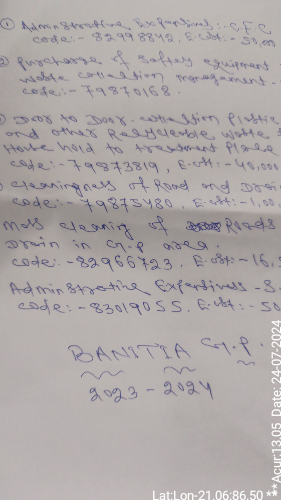 ① Adminstrative Expentives:- C.F.C
code:- 82998842. E.cost:- 50,00
② Purcherge of Saftey equipment
waste collection management -
code:- 79870168.
Door to Door collection Plastic
and other Recycleble waste
House hold to treatment Place
code:- 79873819, E.cost:- 40,000
cleaningness of Road and Drain
code:- 79875480. E.cost:- 1,00,
Mass cleaning of Roads
Drain in G.P area.
code:- 82966723. E.cost:- 16,
Adminstrative Expentives - S.
code:- 83019055. E.cost:- 50
BANITIA G.P.
2023 - 2024
Lat:Lon-21.06:86.50 *
**Acur:13.05 Date: 24-07-2024